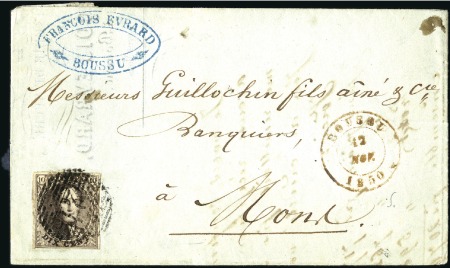 FRANÇOIS EVRARD
BOUSSU
Messieurs Guillochin fils aîné & Cie
Banquiers,
à Mons.
BOUSSU
12
NOV.
1850